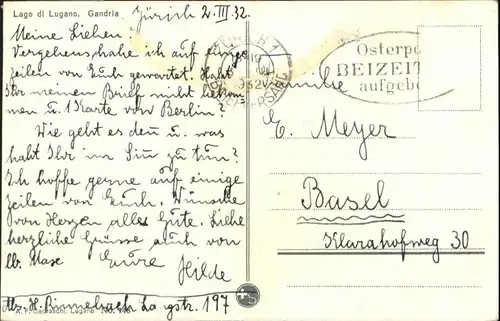 Lago di Lugano. Gandria
Zürich 2.III.32.
Meine Lieben!
Vergebens habe ich auf einige
Zeilen von Euch gewartet. Habt
Ihr meinen Brief nicht bekom-
men u. 1 Karte von Berlin?
Wie geht es den u. was
habt Ihr im Sin zu tun?
Ich hoffe gerne auf einige
Zeilen von Euch. Wünsche
von Herzen alles Gute. Liebe
herzliche Grüsse auch von
lb. Maxe Eure
Hilde
H. Rinnebach Langstr. 197
Lugano No.
Osterpo
BEIZEIT
aufgebe
Familie
E. Meyer
Basel
Klarahofweg 30